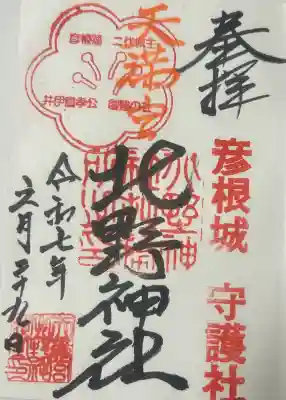 奉拝
彦根城 守護社
天満宮
彦根藩 二代藩主
井伊直孝公 御霊の社
北野神社
令和七年
六月二十九日